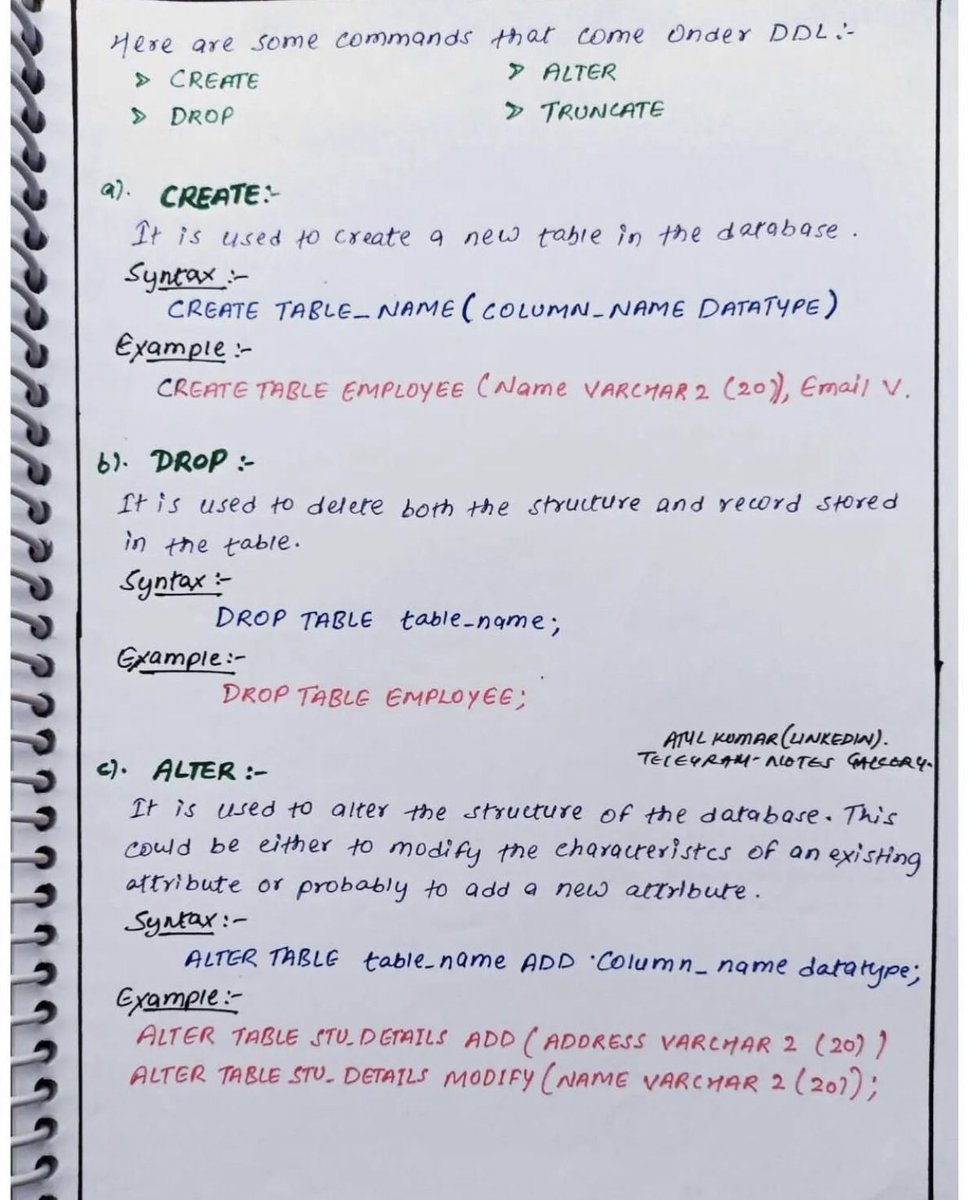 Here are some commands that come Under DDL:-
➢ CREATE ➢ ALTER
➢ DROP ➢ TRUNCATE
a). CREATE:-
It is used to create a new table in the database.
Syntax:-
CREATE TABLE_NAME (COLUMN_NAME DATATYPE)
Example:-
CREATE TABLE EMPLOYEE (Name VARCHAR 2 (20)), Email V.
b). DROP:-
It is used to delete both the structure and record stored
in the table.
Syntax:-
DROP TABLE table_name;
Example:-
DROP TABLE EMPLOYEE;
ATUL KUMAR (LINKEDIN).
TELEGRAM- NOTES GALLERY.
c). ALTER:-
It is used to alter the structure of the database. This
could be either to modify the characteristcs of an existing
attribute or probably to add a new attribute.
Syntax:-
ALTER TABLE table_name ADD Column_name datatype;
Example:-
ALTER TABLE STU_DETAILS ADD (ADDRESS VARCHAR 2 (20))
ALTER TABLE STU_DETAILS MODIFY (NAME VARCHAR 2 (20));